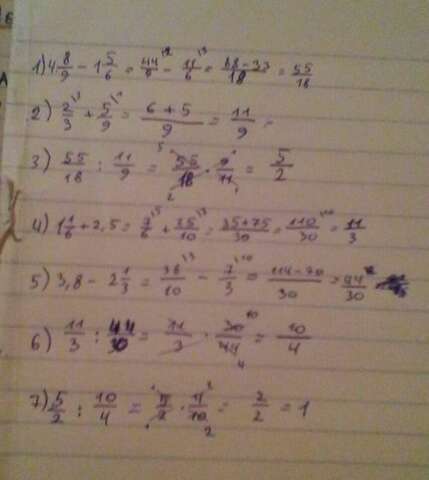 1) 4 8/9 - 1 5/6 = 44/9 - 11/6 = 88-33/18 = 55/18
2) 2/3 + 5/9 = 6+5/9 = 11/9
3) 55/18 : 11/9 = 55/18 · 9/11 = 5/2
4) 1 1/6 + 2,5 = 7/6 + 25/10 = 35+75/30 = 110/30 = 11/3
5) 3,8 - 2 1/3 = 38/10 - 7/3 = 114-70/30 = 44/30
6) 11/3 : 44/30 = 11/3 · 30/44 = 10/4
7) 5/2 : 10/4 = 5/2 · 4/10 = 2/2 = 1